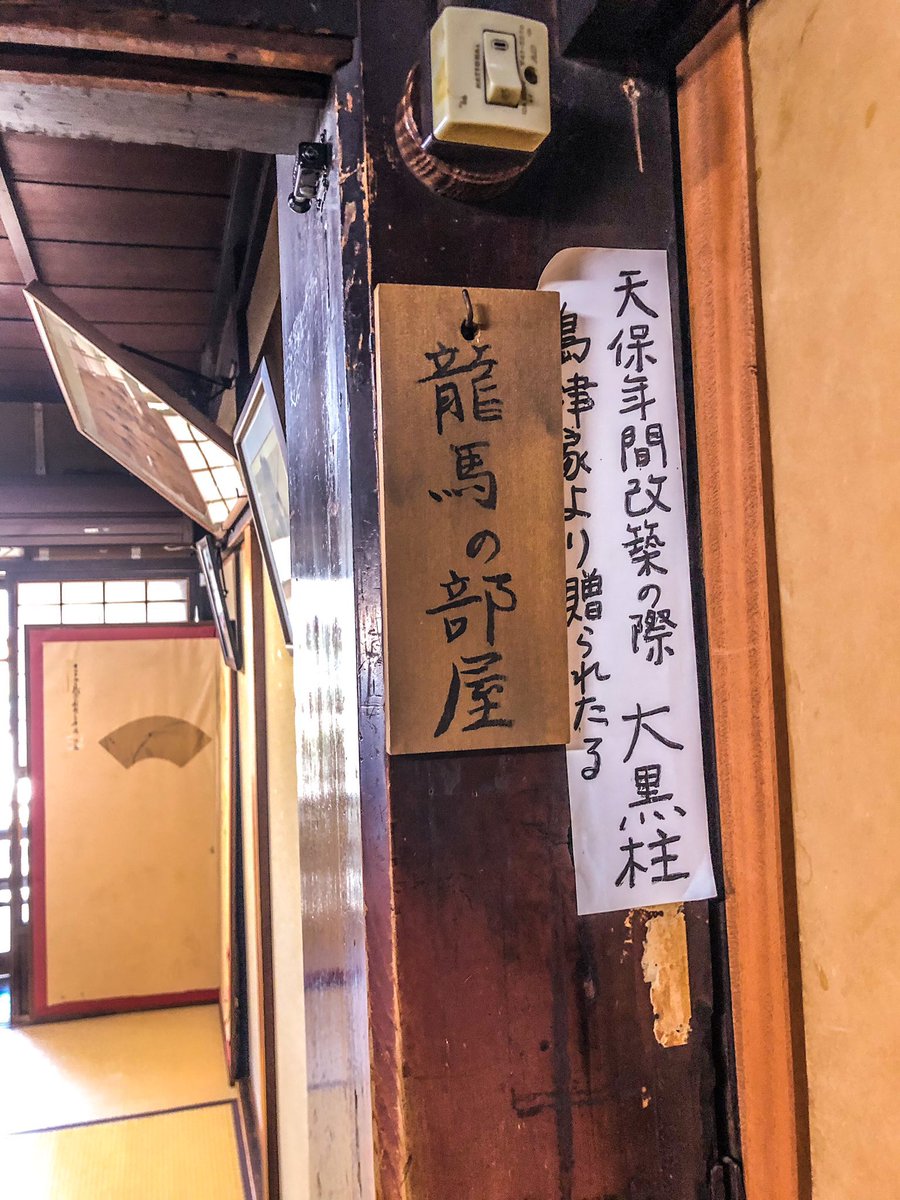 龍馬の部屋
天保年間改築の際 大黒柱
島津家より贈られたる